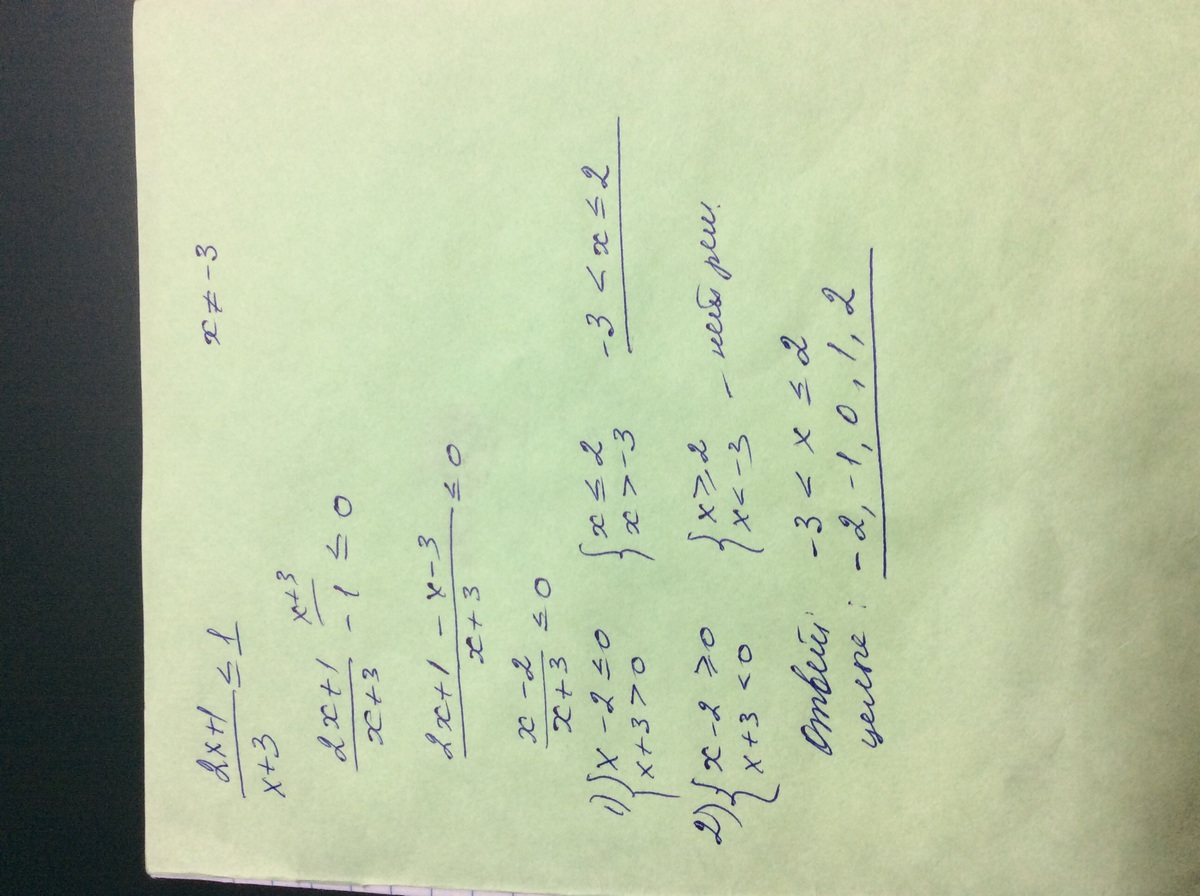 (2x+1)/(x+3) ≤ 1 x ≠ -3
(2x+1)/(x+3) - 1 ≤ 0 x+3
(2x+1 - x-3)/(x+3) ≤ 0
(x-2)/(x+3) ≤ 0
1) { x-2 ≤ 0 { x ≤ 2 -3 < x ≤ 2
x+3 > 0 x > -3
2) { x-2 ≥ 0 { x ≥ 2 - нет реш.
x+3 < 0 x < -3
Ответ: -3 < x ≤ 2
целые: -2, -1, 0, 1, 2